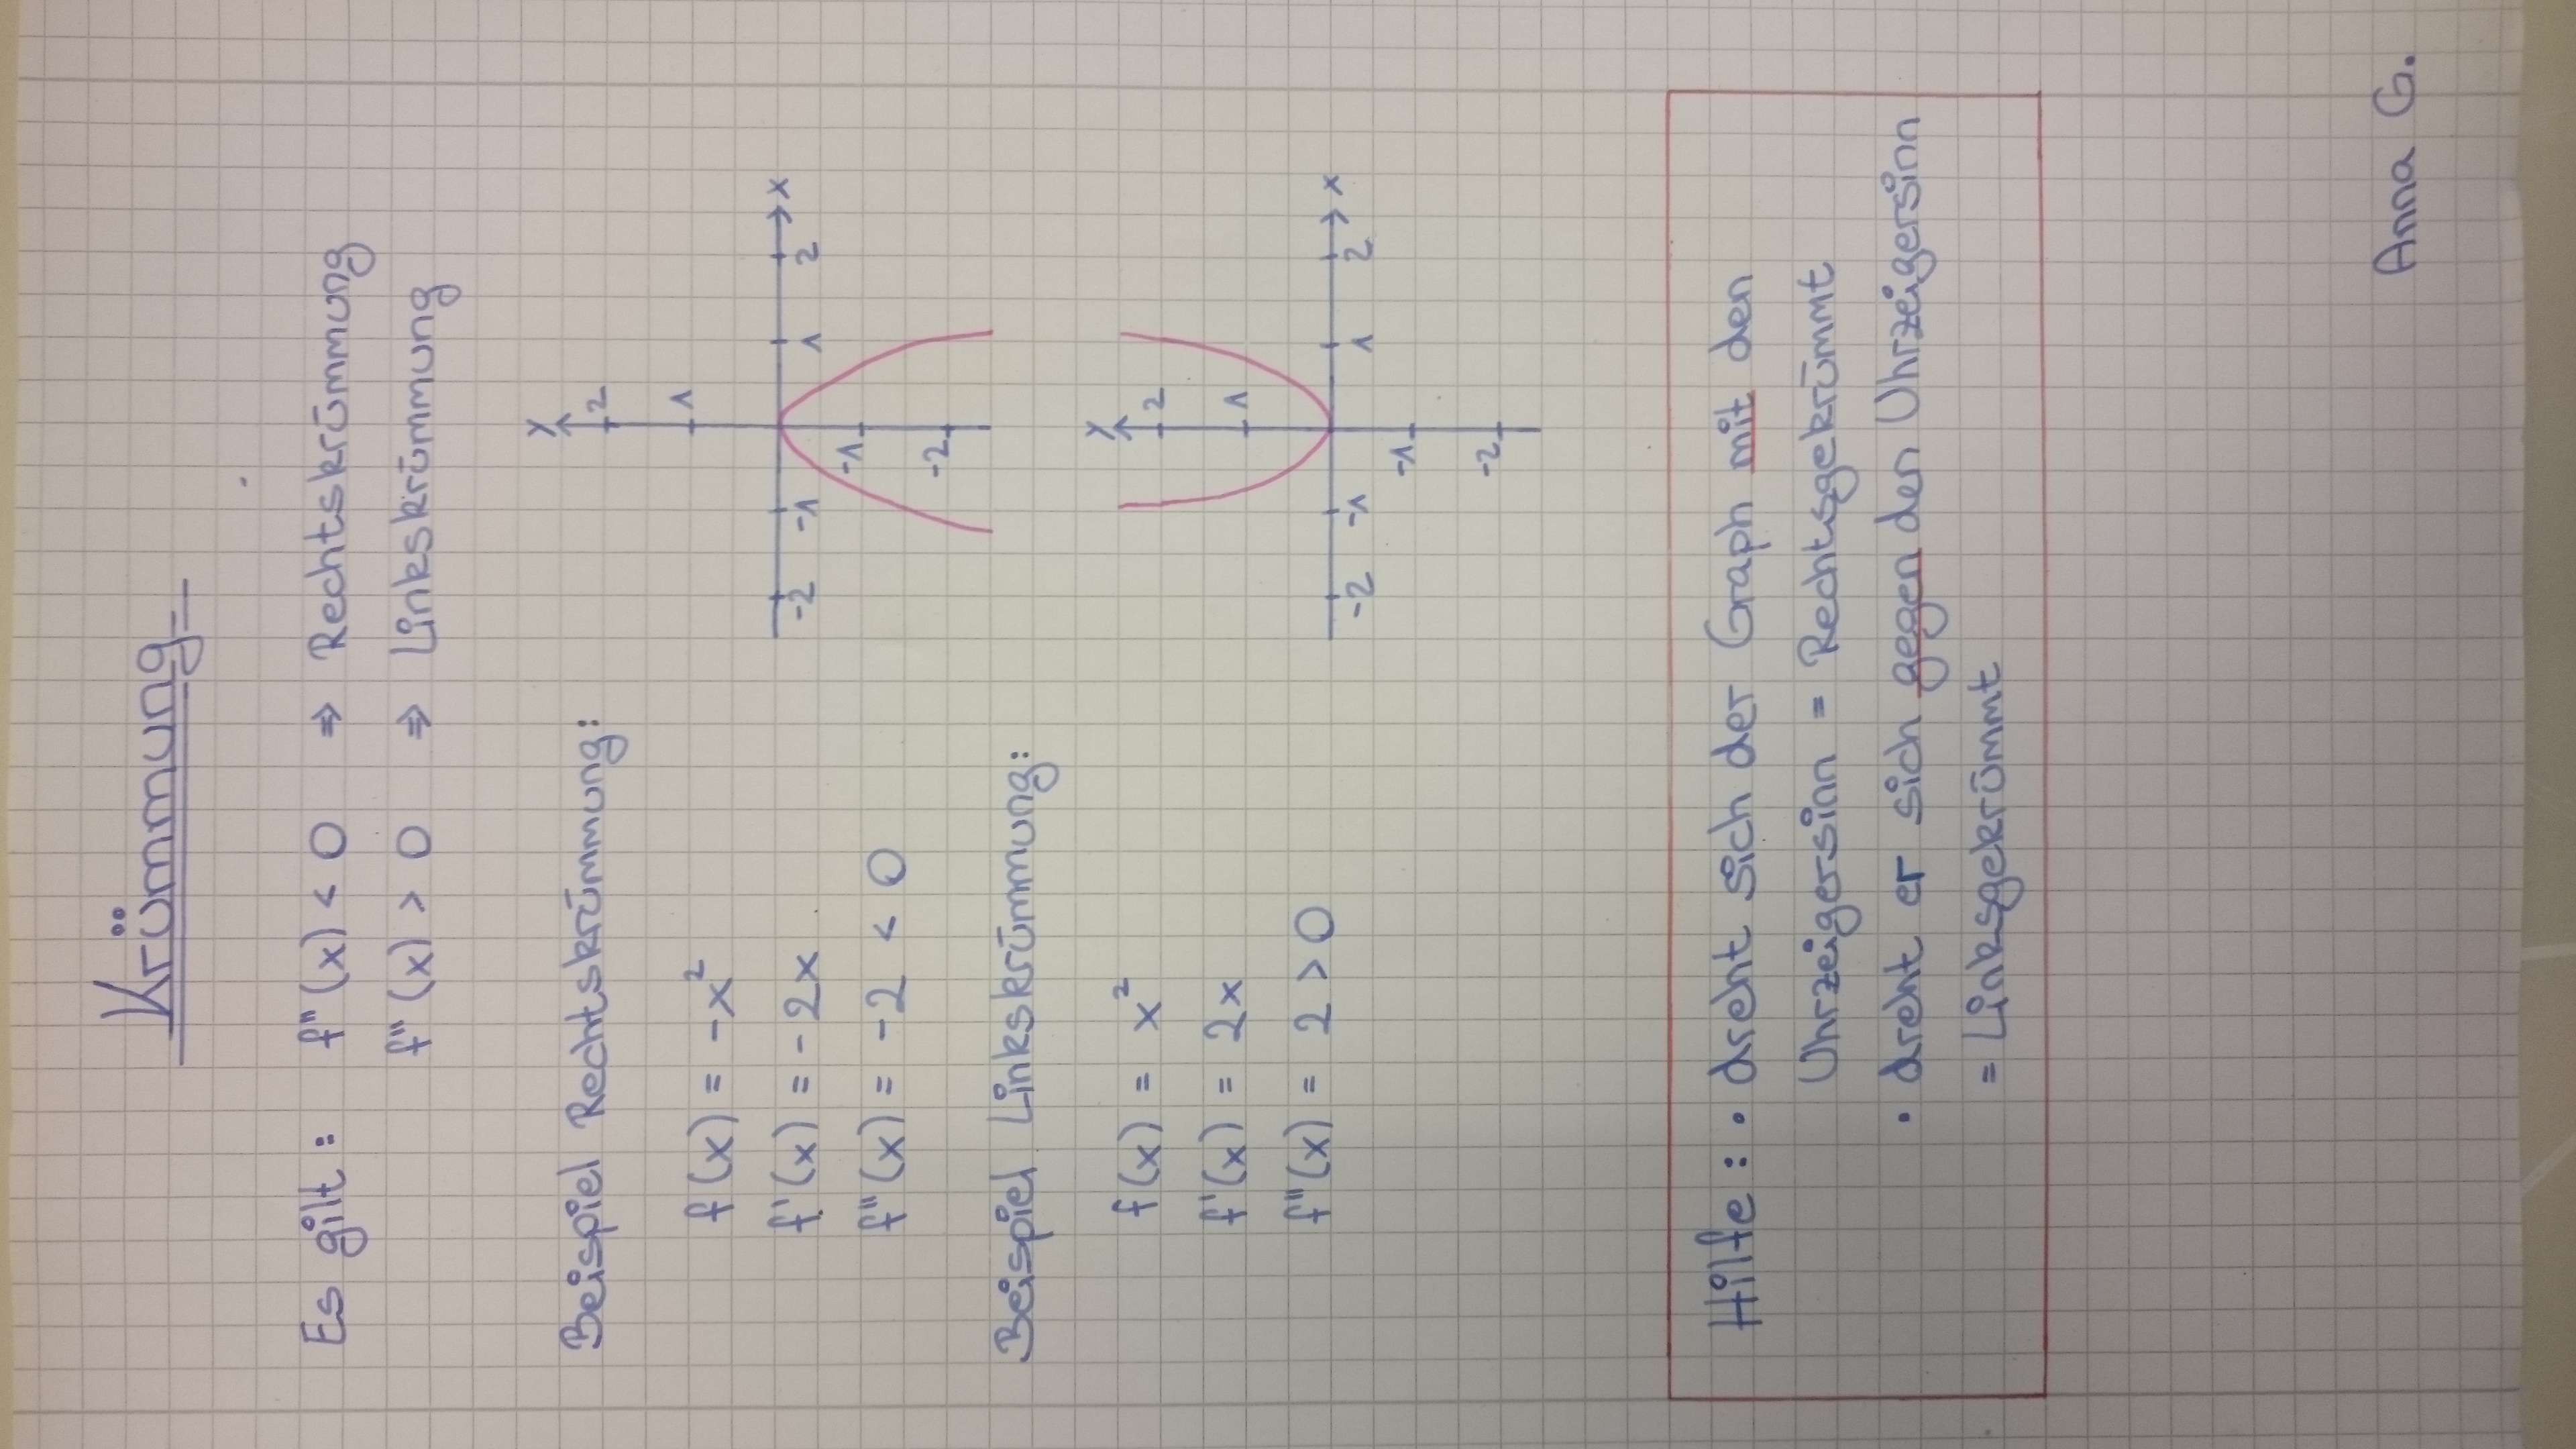 Krümmung
Es gilt: f''(x) < 0 ⇒ Rechtskrümmung
f''(x) > 0 ⇒ Linkskrümmung
Beispiel Rechtskrümmung:
f(x) = -x²
f'(x) = -2x
f''(x) = -2 < 0
y
2
1
-2 -1 1 2 x
-1
-2
Beispiel Linkskrümmung:
f(x) = x²
f'(x) = 2x
f''(x) = 2 > 0
y
2
1
-2 -1 1 2 x
-1
-2
Hilfe: • dreht sich der Graph mit den
Uhrzeigersinn = Rechtsgekrümmt
• dreht er sich gegen den Uhrzeigersinn
= Linksgekrümmt
Anna G.